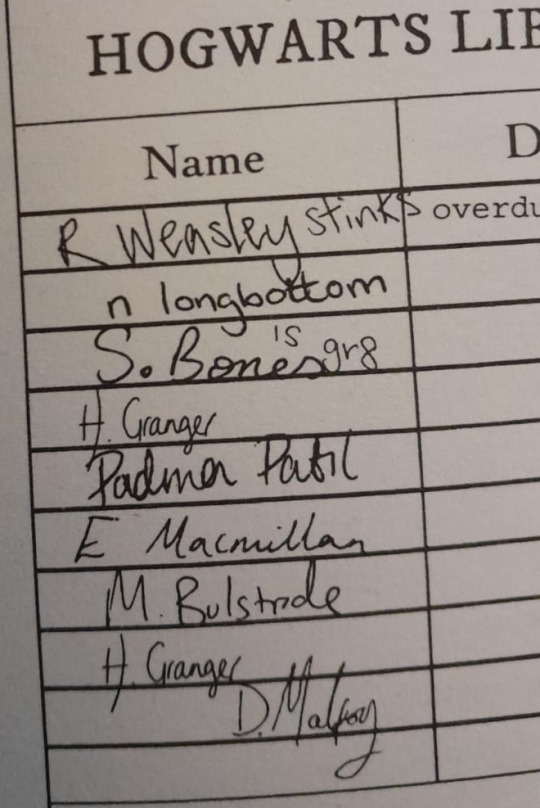 HOGWARTS LIB
Name D
R Weasley stinks overdu
n longbottom
S. Bones is gr8
H. Granger
Padma Patil
E Macmillan
M. Bulstrode
H. Granger
D. Malfoy